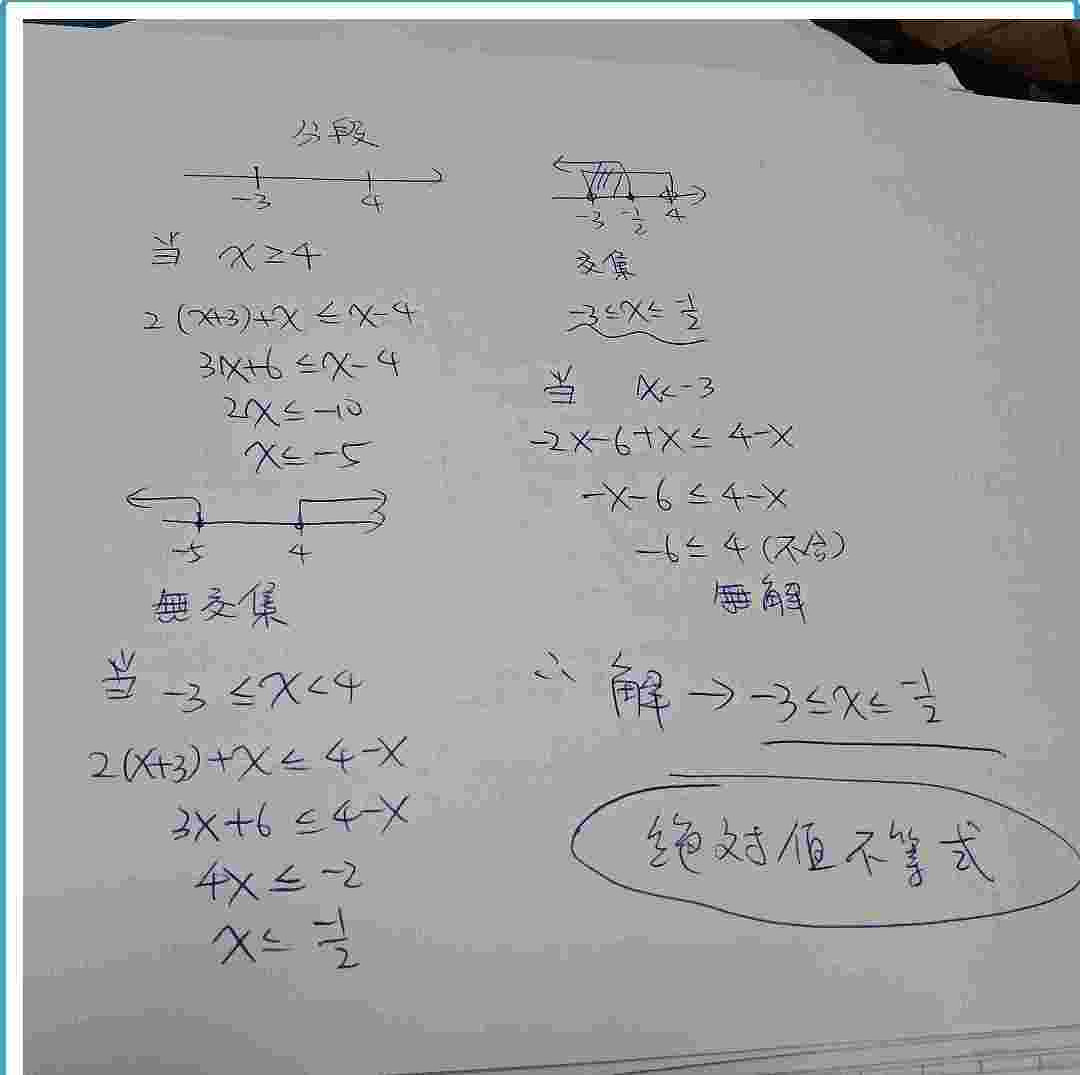 分段
-3 4
当 x≥4
2(x+3)+x ≤ x-4
3x+6 ≤ x-4
2x ≤ -10
x ≤ -5
-5 4
無交集
当 -3 ≤ x < 4
2(x+3)+x ≤ 4-x
3x+6 ≤ 4-x
4x ≤ -2
x ≤ -1/2
-3 -1/2 4
交集
-3 ≤ x ≤ -1/2
当 x<-3
-2x-6+x ≤ 4-x
-x-6 ≤ 4-x
-6 ≤ 4 (不合)
無解
∴ 解 → -3 ≤ x ≤ -1/2
绝对值不等式